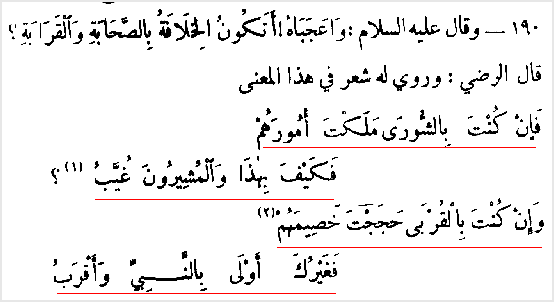 ١٩٠ – وقال عليه السلام : وَاعَجَبَاهُ أَتَكُونُ الْخِلَافَةُ بِالصَّحَابَةِ وَالْقَرَابَةِ ؟
قال الرضي : وروي له شعر في هذا المعنى
فَإِنْ كُنْتَ بِالشُّورَى مَلَكْتَ أُمُورَهُمْ
فَكَيْفَ بِهٰذَا وَالْمُشِيرُونَ غُيَّبُ (١) ؟
وَإِنْ كُنْتَ بِالْقُرْبَى حَجَجْتَ خَصِيمَهُمْ (٢)
فَغَيْرُكَ أَوْلَى بِالنَّبِيِّ وَأَقْرَبُ